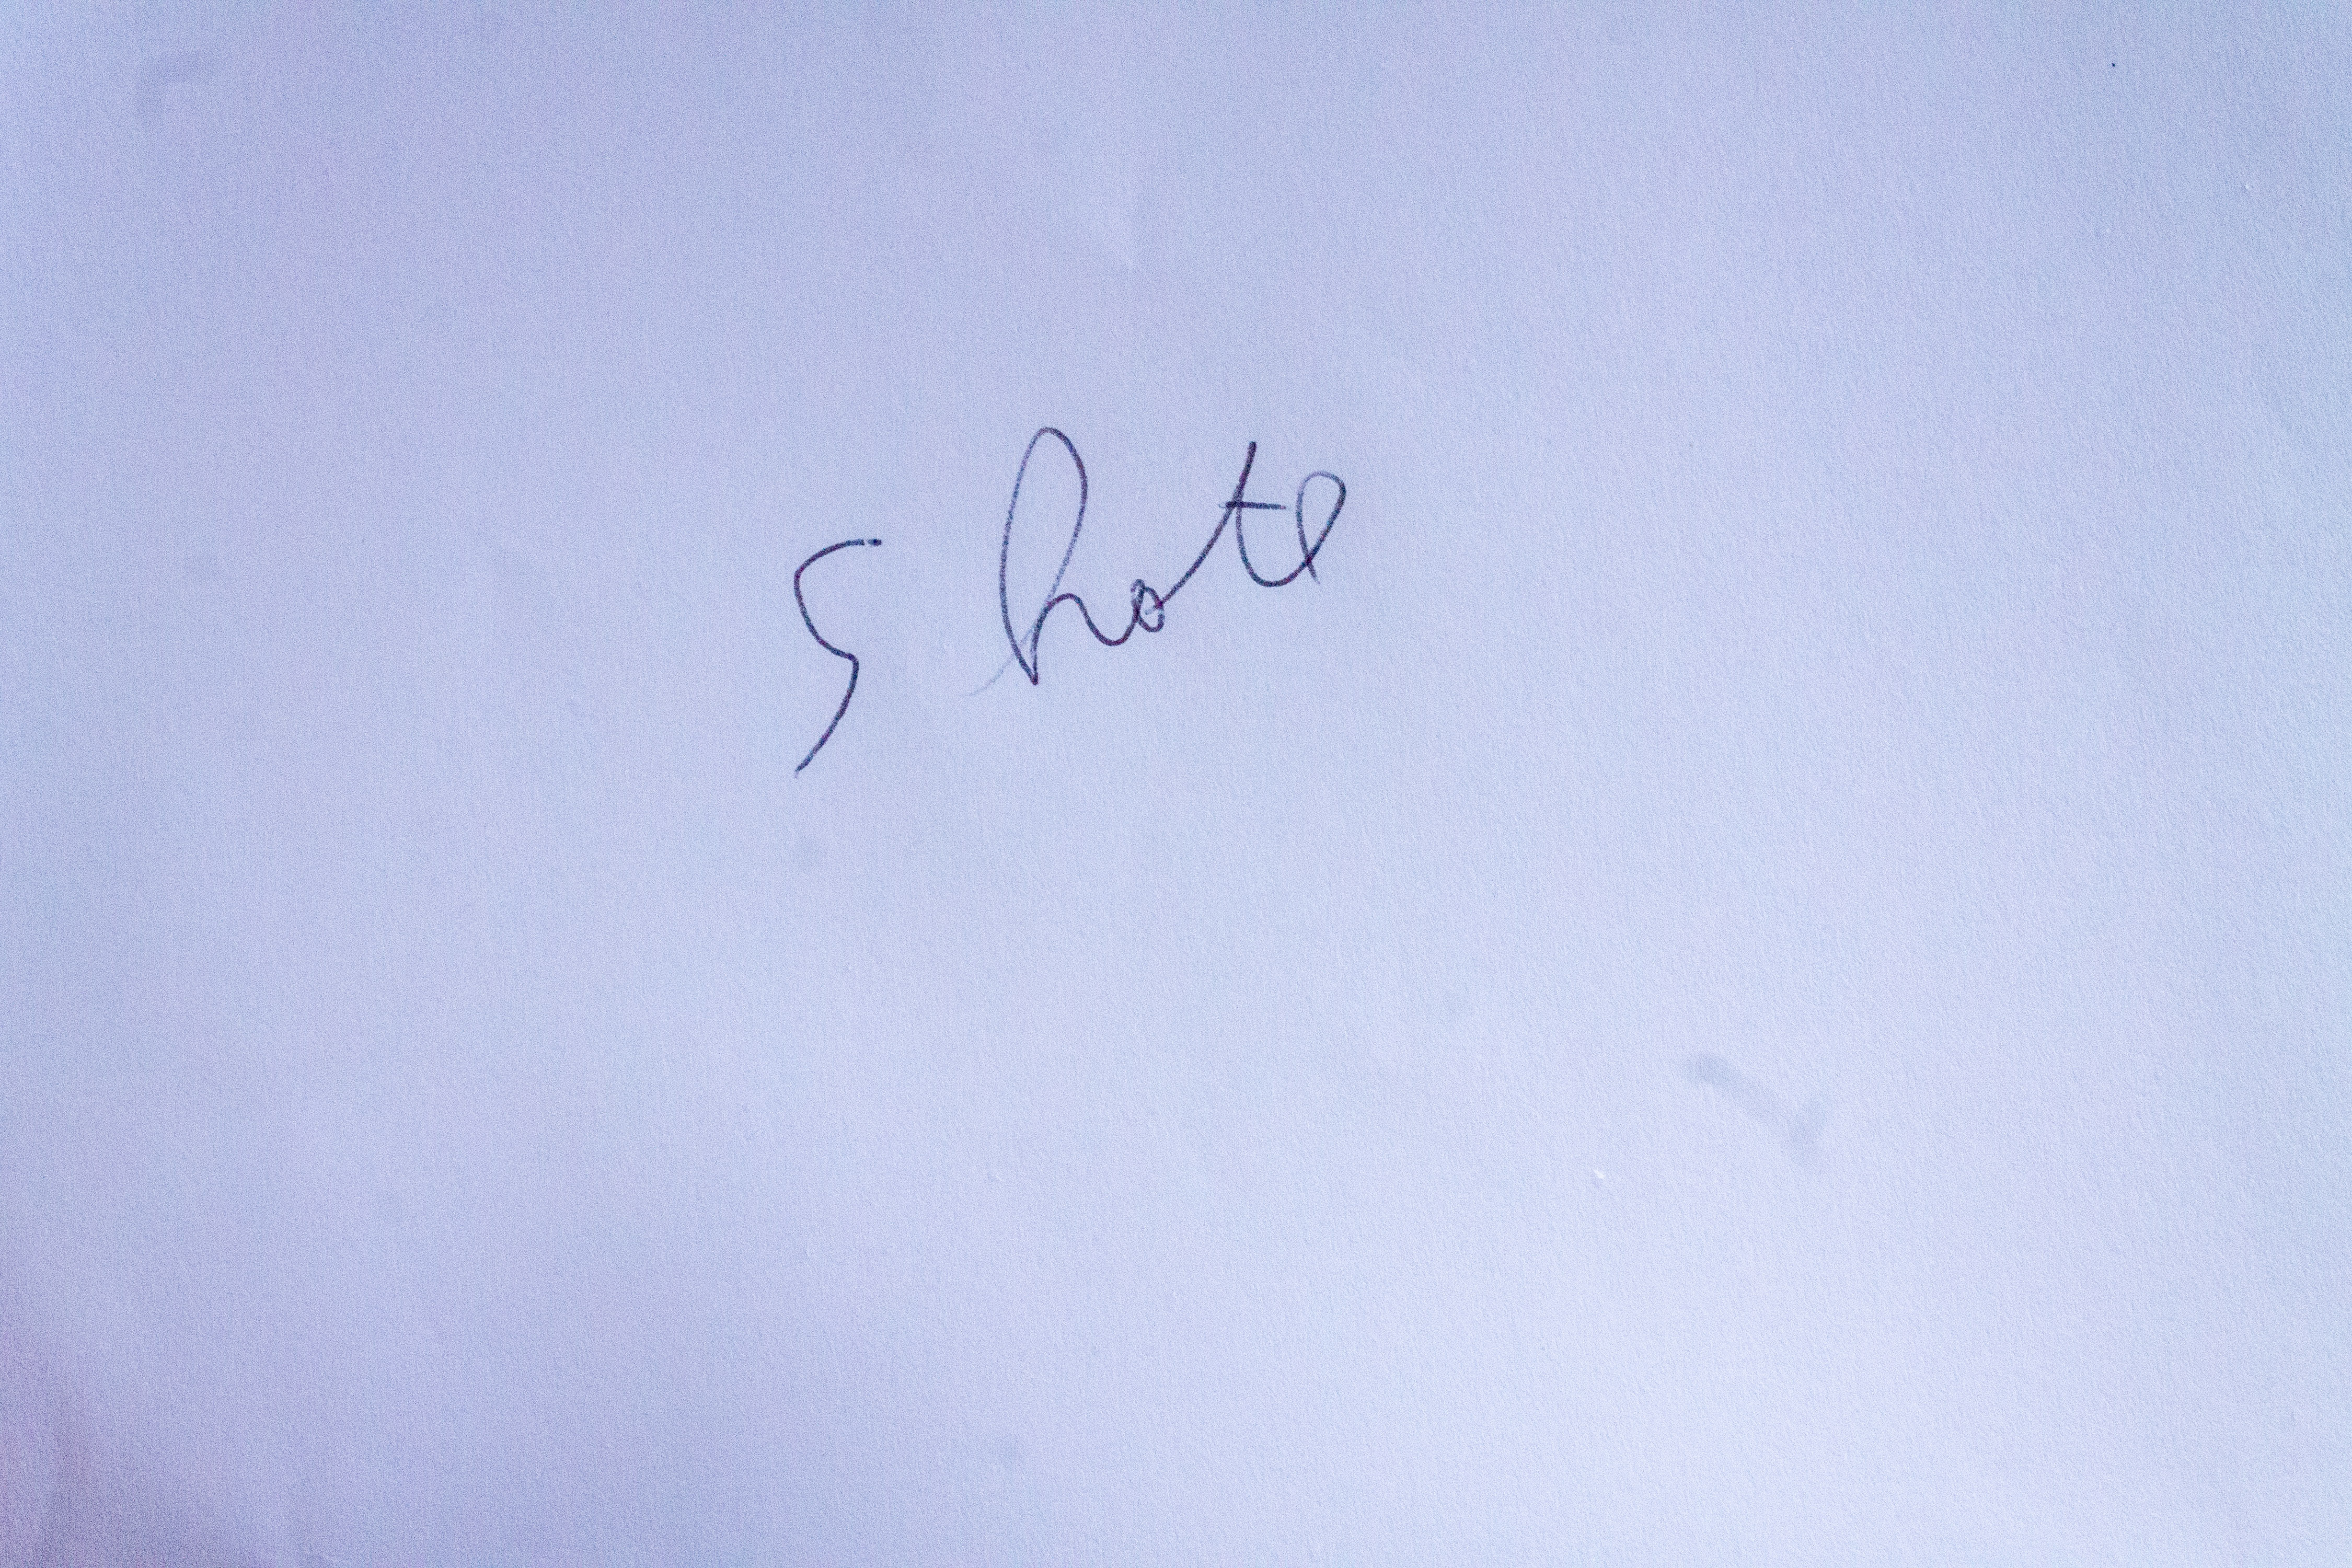 5 hote